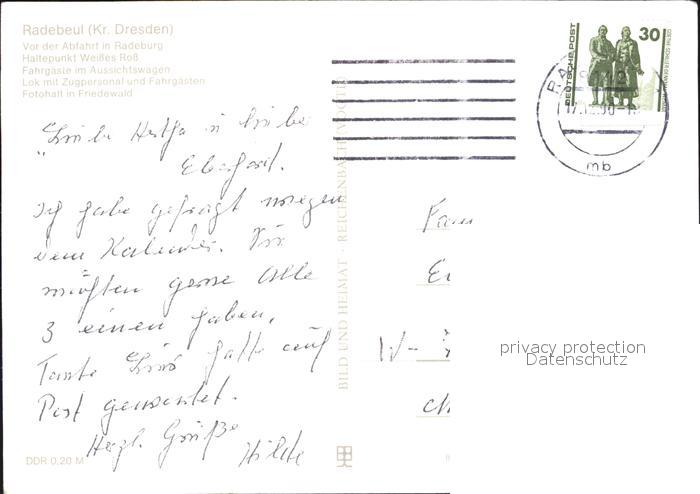 Radebeul (Kr. Dresden)
Vor der Abfahrt in Radeburg
Haltepunkt Weißes Roß
Fahrgäste im Aussichtswagen
Lok mit Zugpersonal und Fahrgästen
Fotohalt in Friedewald
Liebe Hertha u liebe
Eberhard.
Ich habe gefragt wegen
dem Kalender. Wir
möchten gerne alle
3 einen haben.
Tante hatte auf
Post gewartet.
Herzl. Grüße
Hilde
DDR 0,20 M
BILD UND HEIMAT · REICHENBACH (VOGTL)
DEUTSCHE POST
30
mb
Fam
W-
privacy protection
Datenschutz